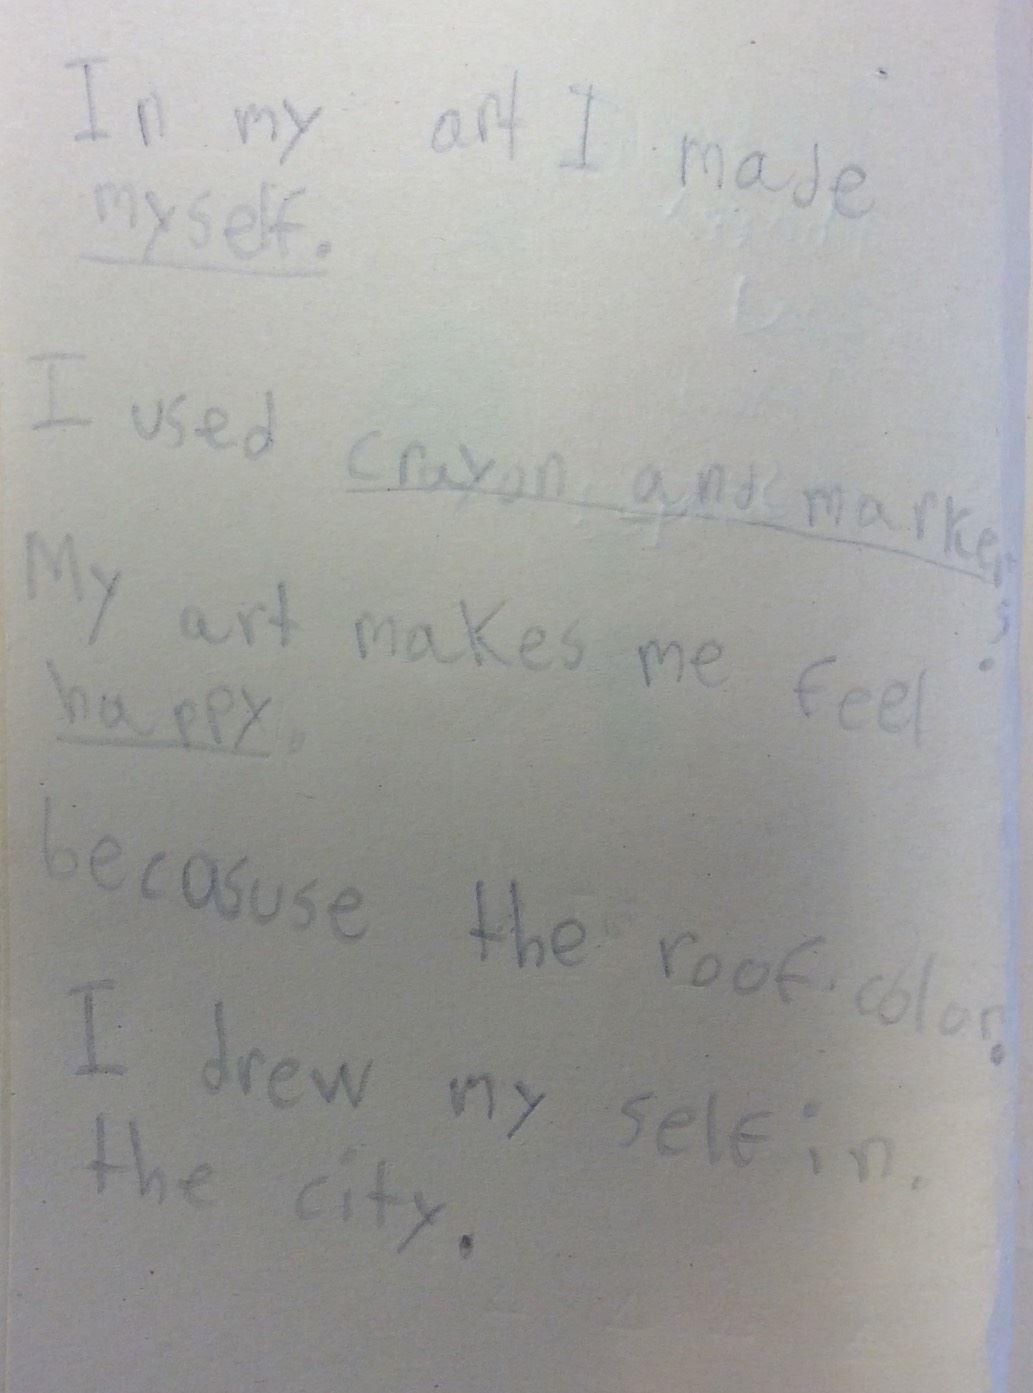 In my art I made
myself.
I used crayon and markers.
My art makes me feel
happy.
becasuse the roof color.
I drew my self in.
the city.